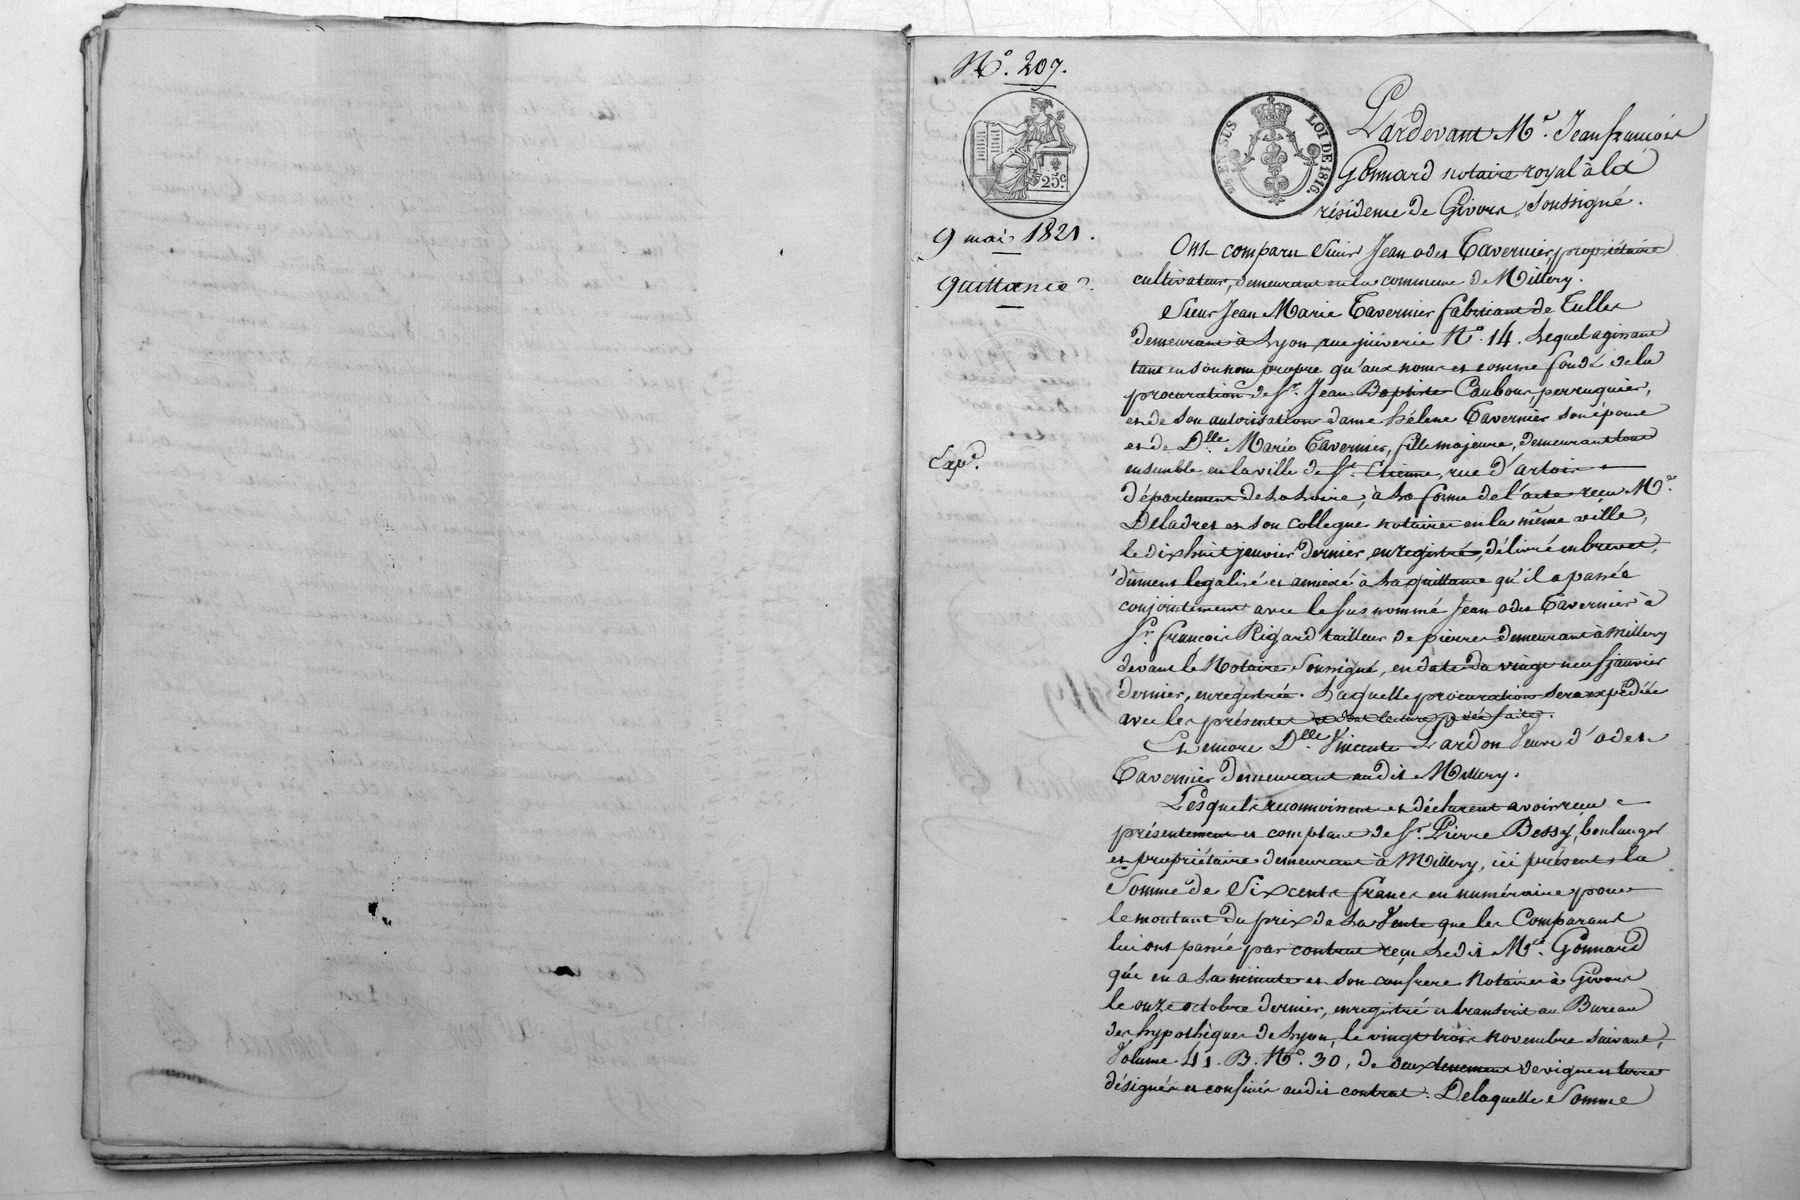 N.° 207.
25c
25 EN SUS
LOI DE 1816.
9 mai 1821.
quittance.
Exp.d
Pardevant M.e Jean françois
Gonnard notaire royal à la
résidence de Givors, soussigné.
Ont comparu Sieur Jean odes Tavernier, propriétaire
cultivateur, demeurant en la commune de Millery.
Sieur Jean Marie Tavernier fabricant de Tulles
demeurant à Lyon, rue juiverie N.° 14. Lequel agissant
tant en son nom propre qu'aux noms et comme fondé de la
procuration de S.r Jean Baptiste Caubour, perruquier,
et de son autorisation dame hélene Tavernier son épouse
et de D.lle Marie Tavernier, fille majeure, demeurant tous
ensemble en la ville de S.t Etienne, rue d'artois
département de la Loire, à la forme de l'acte reçu M.e
Deladret et son collegue notaires en la même ville,
le dix huit janvier dernier, enregistré, délivré en brevet,
dûment legalisé et annexé à la quittance qu'il a passée
conjointement avec le sus nommé Jean odes Tavernier à
S.r françois Rigard tailleur de pierres demeurant à Millery
devant le Notaire soussigné, en date du vingt neuf janvier
dernier, enregistrée. Laquelle procuration sera expédiée
avec les présentes
Et encore D.lle Vincente Lardon veuve d'odes
Tavernier demeurant audit Millery.
Lesquels reconnoissent et déclarent avoir reçu
présentement et comptant de S.r Pierre Bessy, boulanger
et propriétaire demeurant à Millery, ici présent, la
somme de Six cents francs en numéraire pour
le montant du prix de la Vente que les Comparant
lui ont passée par contrat reçu ledit M.e Gonnard
qui en a la minute et son confrere Notaires à Givors
le onze octobre dernier, enregistré et transcrit au Bureau
des hypothèques de Lyon, le vingt trois novembre suivant,
Volume 41. B. N.° 30, de deux tenement de vigne et terre
désignés et confinés audit contrat. De laquelle Somme